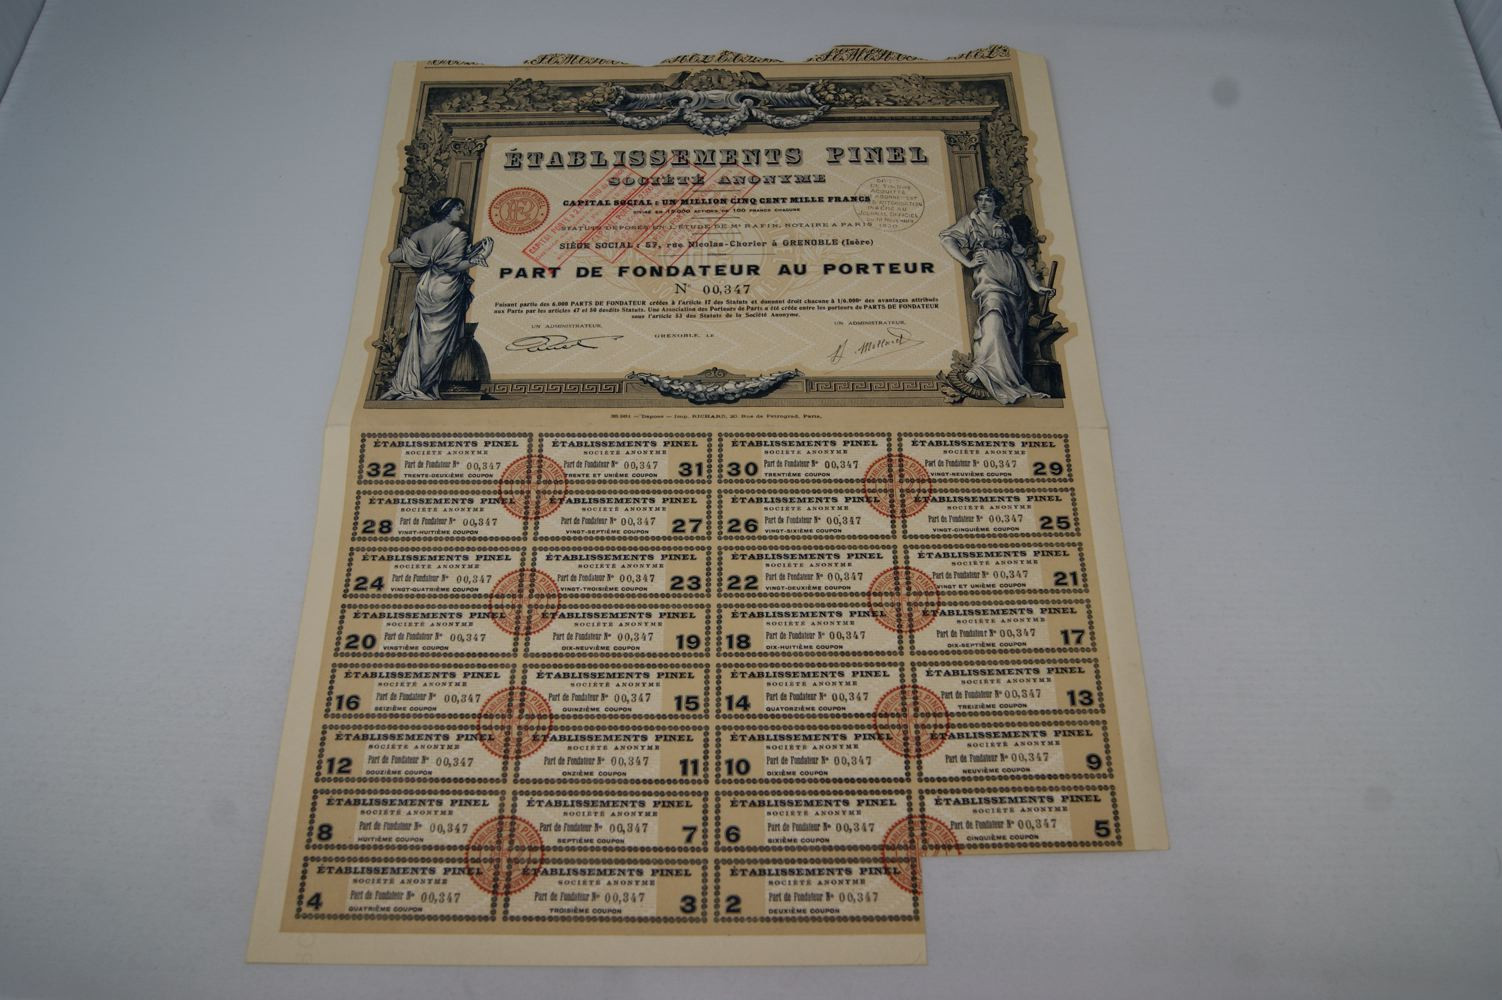 ÉTABLISSEMENTS PINEL
SOCIÉTÉ ANONYME
CAPITAL SOCIAL : UN MILLION CINQ CENT MILLE FRANCS
DIVISÉ EN 15.000 ACTIONS DE 100 FRANCS CHACUNE
STATUTS DÉPOSÉS EN L'ÉTUDE DE Me RAFIN, NOTAIRE A PARIS
SIÈGE SOCIAL : 57, rue Nicolas-Chorier à GRENOBLE (Isère)
PART DE FONDATEUR AU PORTEUR
N° 00,347
Faisant partie des 6.000 PARTS DE FONDATEUR créées à l'article 17 des Statuts et donnant droit chacune à 1/6.000e des avantages attribués
aux Parts par les articles 47 et 50 desdits Statuts. Une Association des Porteurs de Parts a été créée entre les porteurs de PARTS DE FONDATEUR
sous l'article 53 des Statuts de la Société Anonyme.
UN ADMINISTRATEUR, UN ADMINISTRATEUR,
GRENOBLE, LE
Imp. RICHARD, 20, Rue de Petrograd, Paris.
ÉTABLISSEMENTS PINEL
SOCIÉTÉ ANONYME
32 Part de Fondateur N° 00,347
TRENTE-DEUXIÈME COUPON
ÉTABLISSEMENTS PINEL
SOCIÉTÉ ANONYME
Part de Fondateur N° 00,347 31
TRENTE ET UNIÈME COUPON
ÉTABLISSEMENTS PINEL
SOCIÉTÉ ANONYME
30 Part de Fondateur N° 00,347
TRENTIÈME COUPON
ÉTABLISSEMENTS PINEL
SOCIÉTÉ ANONYME
Part de Fondateur N° 00,347 29
VINGT-NEUVIÈME COUPON
ÉTABLISSEMENTS PINEL
SOCIÉTÉ ANONYME
28 Part de Fondateur N° 00,347
VINGT-HUITIÈME COUPON
ÉTABLISSEMENTS PINEL
SOCIÉTÉ ANONYME
Part de Fondateur N° 00,347 27
VINGT-SEPTIÈME COUPON
ÉTABLISSEMENTS PINEL
SOCIÉTÉ ANONYME
26 Part de Fondateur N° 00,347
VINGT-SIXIÈME COUPON
ÉTABLISSEMENTS PINEL
SOCIÉTÉ ANONYME
Part de Fondateur N° 00,347 25
VINGT-CINQUIÈME COUPON
ÉTABLISSEMENTS PINEL
SOCIÉTÉ ANONYME
24 Part de Fondateur N° 00,347
VINGT-QUATRIÈME COUPON
ÉTABLISSEMENTS PINEL
SOCIÉTÉ ANONYME
Part de Fondateur N° 00,347 23
VINGT-TROISIÈME COUPON
ÉTABLISSEMENTS PINEL
SOCIÉTÉ ANONYME
22 Part de Fondateur N° 00,347
VINGT-DEUXIÈME COUPON
ÉTABLISSEMENTS PINEL
SOCIÉTÉ ANONYME
Part de Fondateur N° 00,347 21
VINGT ET UNIÈME COUPON
ÉTABLISSEMENTS PINEL
SOCIÉTÉ ANONYME
20 Part de Fondateur N° 00,347
VINGTIÈME COUPON
ÉTABLISSEMENTS PINEL
SOCIÉTÉ ANONYME
Part de Fondateur N° 00,347 19
DIX-NEUVIÈME COUPON
ÉTABLISSEMENTS PINEL
SOCIÉTÉ ANONYME
18 Part de Fondateur N° 00,347
DIX-HUITIÈME COUPON
ÉTABLISSEMENTS PINEL
SOCIÉTÉ ANONYME
Part de Fondateur N° 00,347 17
DIX-SEPTIÈME COUPON
ÉTABLISSEMENTS PINEL
SOCIÉTÉ ANONYME
16 Part de Fondateur N° 00,347
SEIZIÈME COUPON
ÉTABLISSEMENTS PINEL
SOCIÉTÉ ANONYME
Part de Fondateur N° 00,347 15
QUINZIÈME COUPON
ÉTABLISSEMENTS PINEL
SOCIÉTÉ ANONYME
14 Part de Fondateur N° 00,347
QUATORZIÈME COUPON
ÉTABLISSEMENTS PINEL
SOCIÉTÉ ANONYME
Part de Fondateur N° 00,347 13
TREIZIÈME COUPON
ÉTABLISSEMENTS PINEL
SOCIÉTÉ ANONYME
12 Part de Fondateur N° 00,347
DOUZIÈME COUPON
ÉTABLISSEMENTS PINEL
SOCIÉTÉ ANONYME
Part de Fondateur N° 00,347 11
ONZIÈME COUPON
ÉTABLISSEMENTS PINEL
SOCIÉTÉ ANONYME
10 Part de Fondateur N° 00,347
DIXIÈME COUPON
ÉTABLISSEMENTS PINEL
SOCIÉTÉ ANONYME
Part de Fondateur N° 00,347 9
NEUVIÈME COUPON
ÉTABLISSEMENTS PINEL
SOCIÉTÉ ANONYME
8 Part de Fondateur N° 00,347
HUITIÈME COUPON
ÉTABLISSEMENTS PINEL
SOCIÉTÉ ANONYME
Part de Fondateur N° 00,347 7
SEPTIÈME COUPON
ÉTABLISSEMENTS PINEL
SOCIÉTÉ ANONYME
6 Part de Fondateur N° 00,347
SIXIÈME COUPON
ÉTABLISSEMENTS PINEL
SOCIÉTÉ ANONYME
Part de Fondateur N° 00,347 5
CINQUIÈME COUPON
ÉTABLISSEMENTS PINEL
SOCIÉTÉ ANONYME
4 Part de Fondateur N° 00,347
QUATRIÈME COUPON
ÉTABLISSEMENTS PINEL
SOCIÉTÉ ANONYME
Part de Fondateur N° 00,347 3
TROISIÈME COUPON
ÉTABLISSEMENTS PINEL
SOCIÉTÉ ANONYME
2 Part de Fondateur N° 00,347
DEUXIÈME COUPON